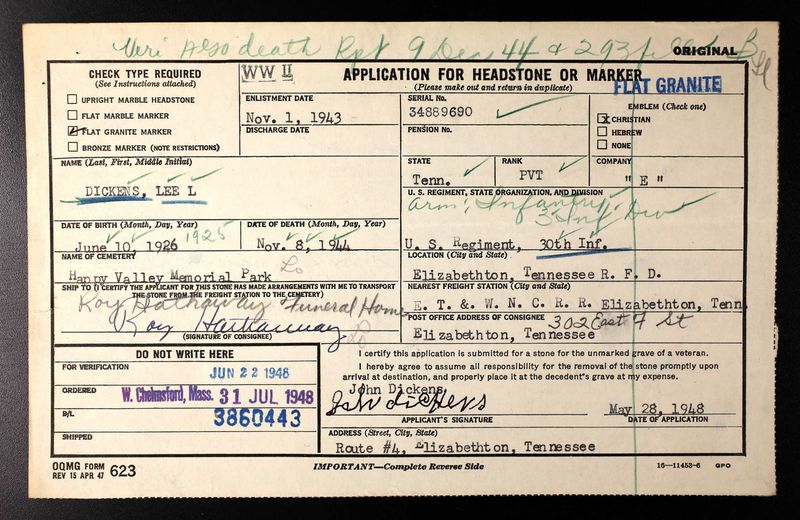 Veri Also death Rpt 9 Dec 44 & 293 filed
ORIGINAL
CHECK TYPE REQUIRED
(See Instructions attached)
UPRIGHT MARBLE HEADSTONE
FLAT MARBLE MARKER
FLAT GRANITE MARKER
BRONZE MARKER (NOTE RESTRICTIONS)
WW II
APPLICATION FOR HEADSTONE OR MARKER
(Please make out and return in duplicate)
FLAT GRANITE
ENLISTMENT DATE
Nov. 1, 1943
DISCHARGE DATE
SERIAL No.
34889690
PENSION No.
EMBLEM (Check one)
X CHRISTIAN
HEBREW
NONE
NAME (Last, First, Middle Initial)
DICKENS, LEE L
STATE
Tenn.
RANK
PVT
COMPANY
" E "
U. S. REGIMENT, STATE ORGANIZATION, AND DIVISION
Arm: Infantry
3 Inf Div
U. S. Regiment, 30th Inf.
DATE OF BIRTH (Month, Day, Year)
June 10, 1926 1925
DATE OF DEATH (Month, Day, Year)
Nov. 8, 1944
NAME OF CEMETERY
Happy Valley Memorial Park
LOCATION (City and State)
Elizabethton, Tennessee R. F. D.
SHIP TO (I CERTIFY THE APPLICANT FOR THIS STONE HAS MADE ARRANGEMENTS WITH ME TO TRANSPORT
THE STONE FROM THE FREIGHT STATION TO THE CEMETERY)
Roy Hathaway Funeral Home
Roy Hathaway
(SIGNATURE OF CONSIGNEE)
NEAREST FREIGHT STATION (City and State)
E. T. &. W. N. C. R. R. Elizabethton, Tenn
POST OFFICE ADDRESS OF CONSIGNEE
302 East F St
Elizabethton, Tennessee
DO NOT WRITE HERE
FOR VERIFICATION
JUN 22 1948
ORDERED
W. Chelmsford, Mass. 31 JUL 1948
B/L
3860443
SHIPPED
I certify this application is submitted for a stone for the unmarked grave of a veteran.
I hereby agree to assume all responsibility for the removal of the stone promptly upon
arrival at destination, and properly place it at the decedent's grave at my expense.
John Dickens
John dickens
APPLICANT'S SIGNATURE
May 28, 1948
DATE OF APPLICATION
ADDRESS (Street, City, State)
Route #4, Elizabethton, Tennessee
OQMG FORM
REV 15 APR 47 623
IMPORTANT—Complete Reverse Side
16—11453-6 GPO